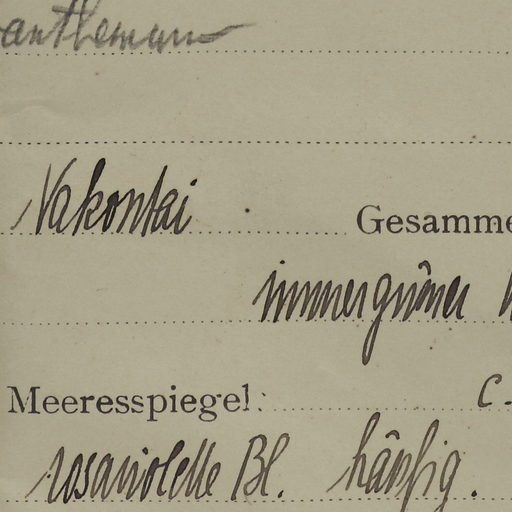 anthemum
Nakontai Gesamme
immergrüner
Meeresspiegel: c.
rosaviolette Bl. häufig.